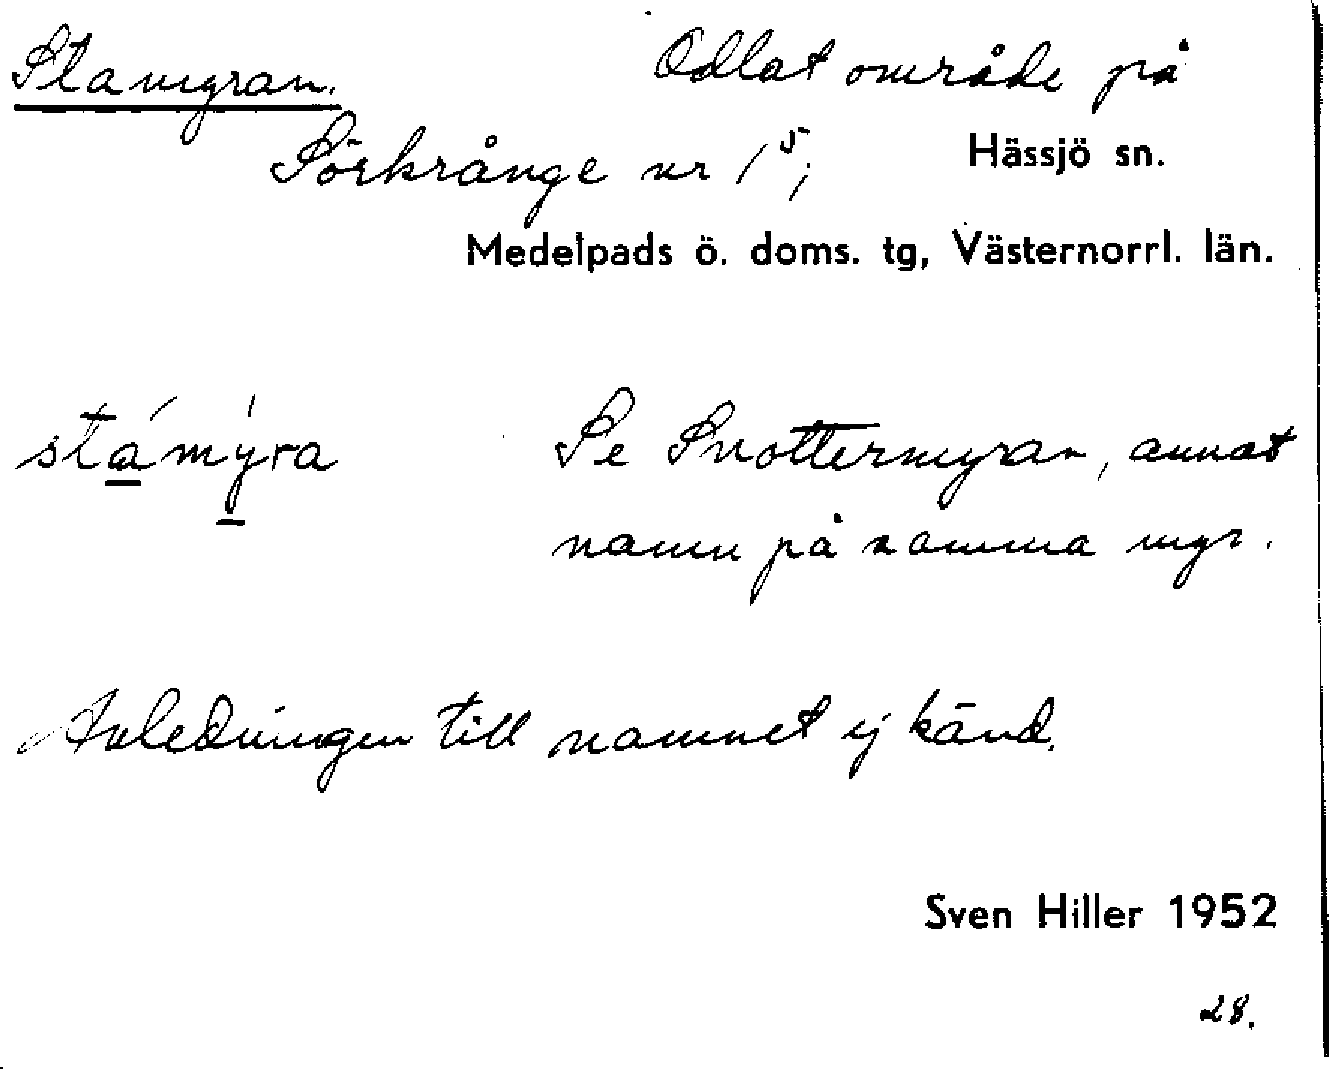 Stamyran. Odlat område på
Sörkrånge nr 1⁵, Hässjö sn.
Medelpads ö. doms. tg, Västernorrl. län.
stámy̍ra Se Snottermyran, annat
namn på samma myr.
Avledningen till namnet ej känd.
Sven Hiller 1952
28.